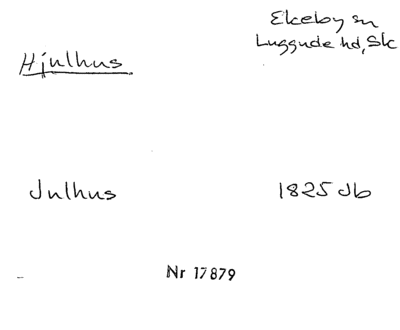 Ekeby sn
Luggude hd, Sk
Hjulhus
Julhus 1825 Jb
Nr 17879